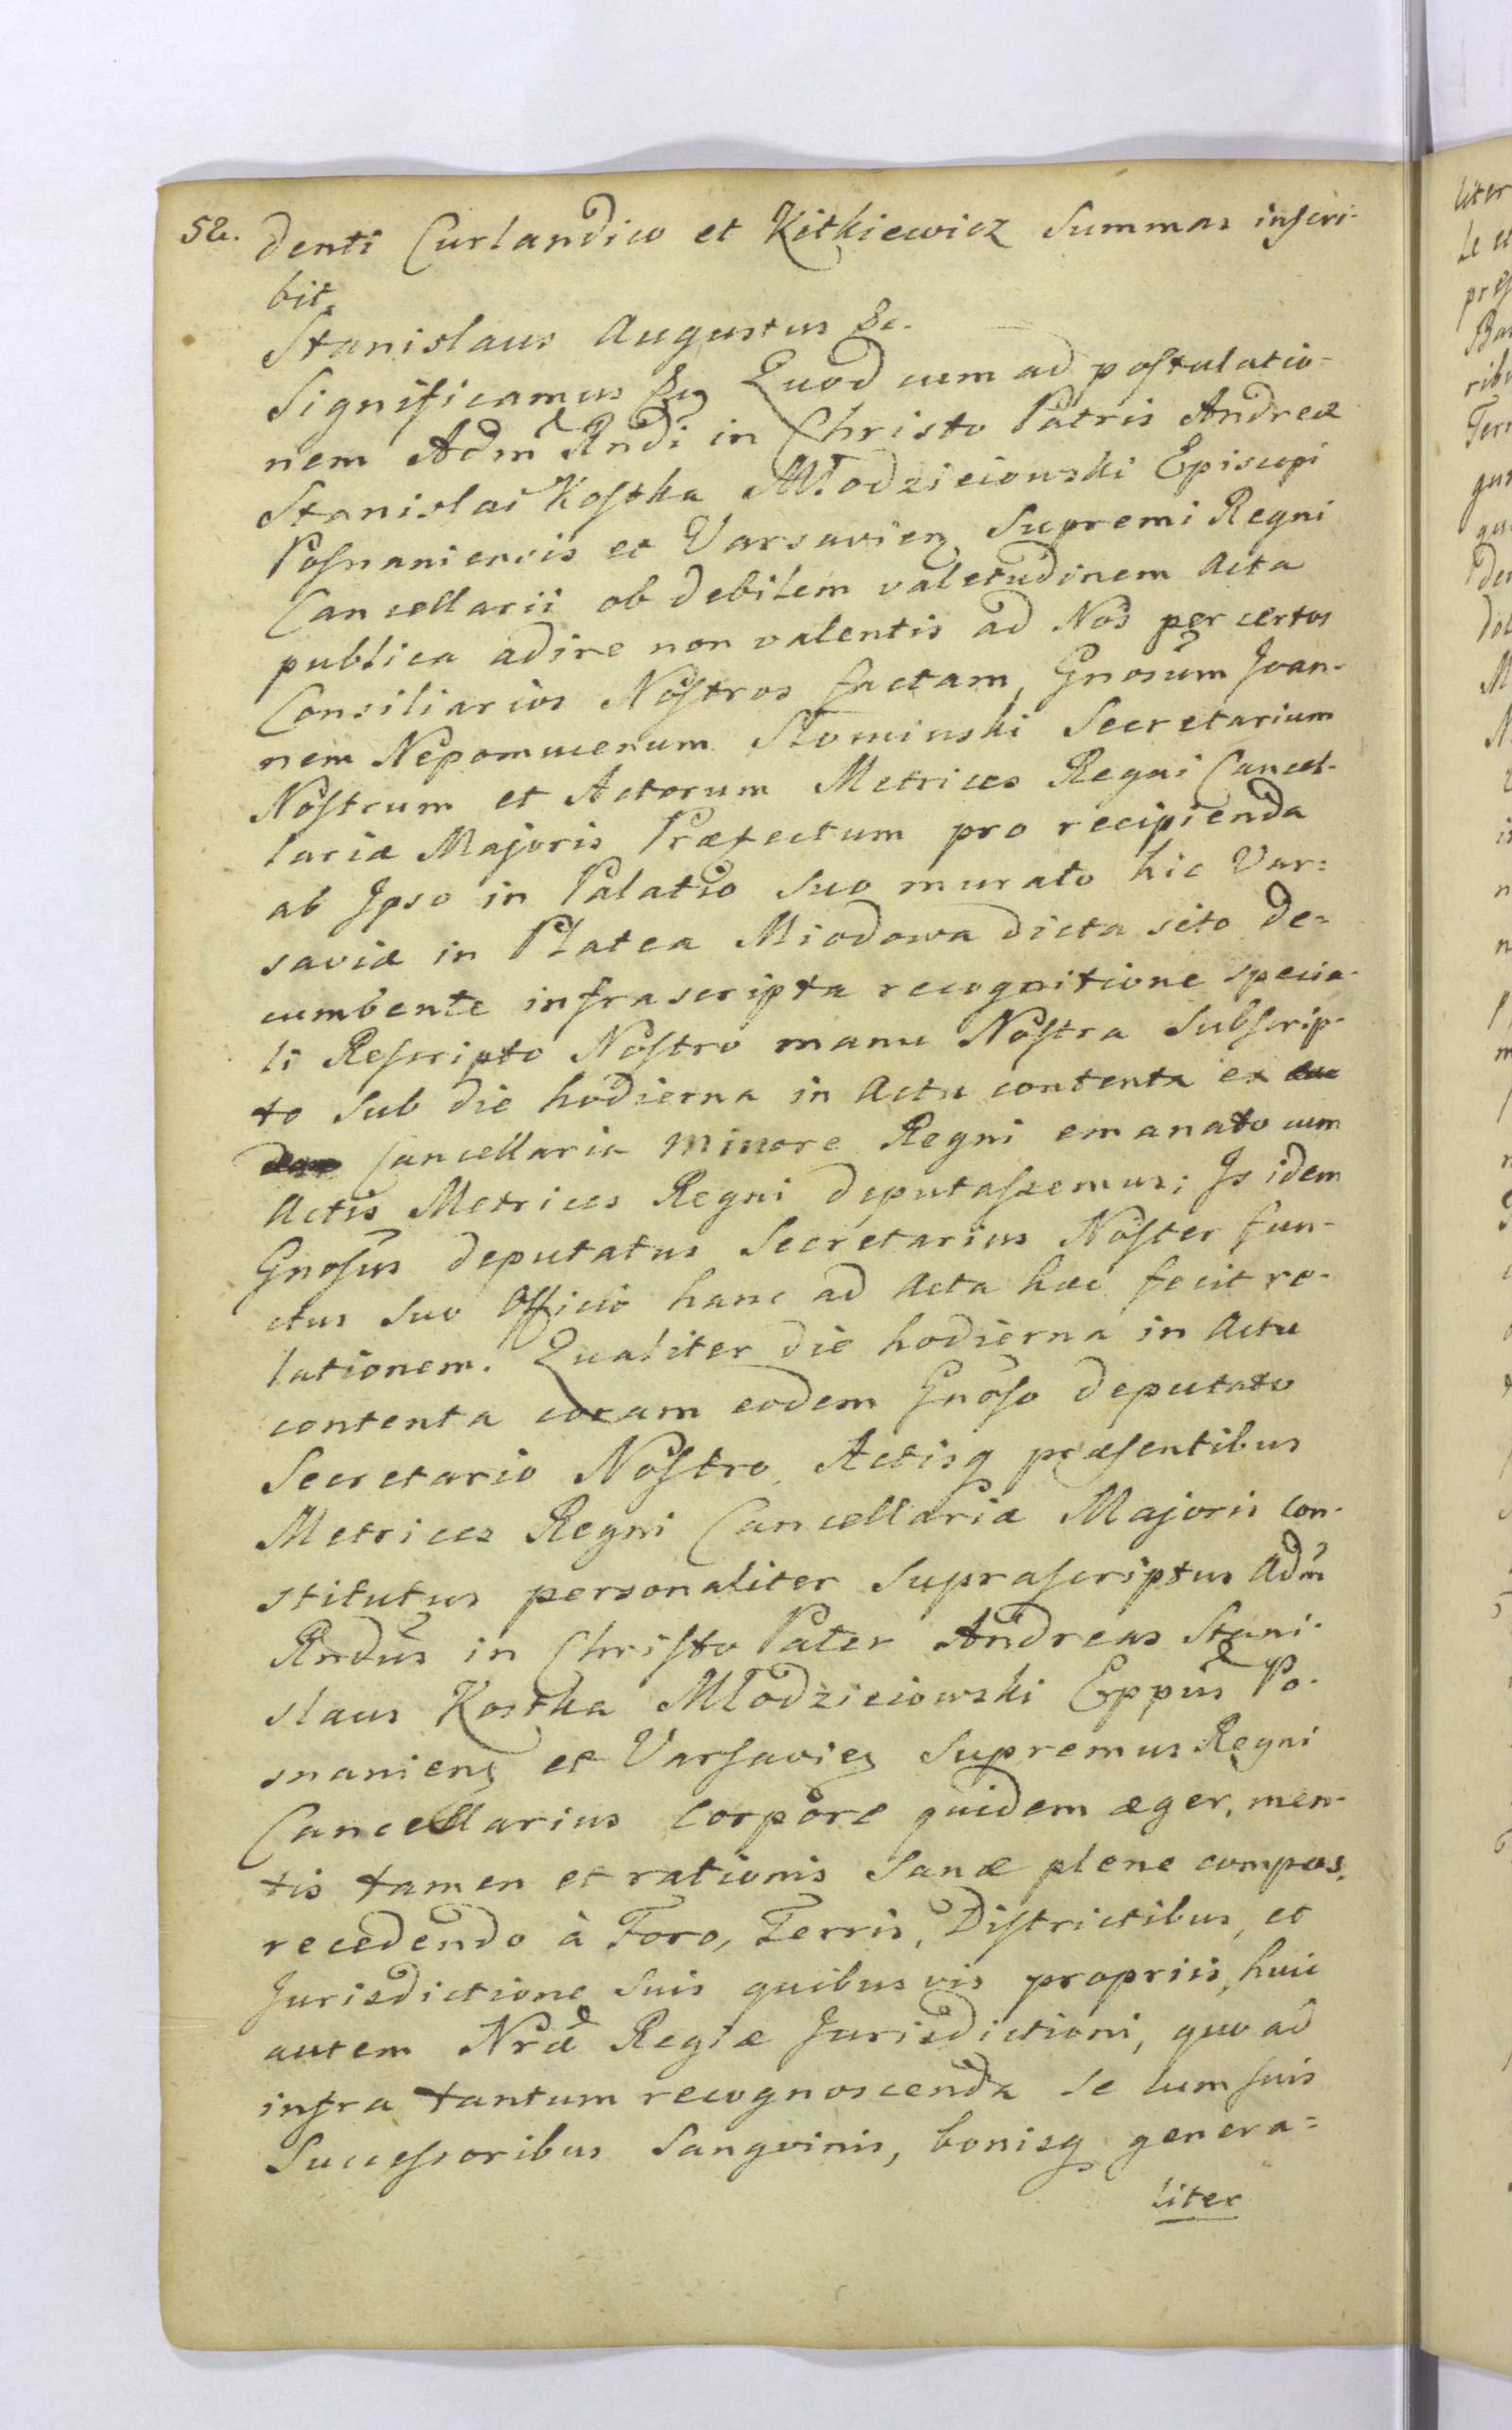 52. denti Curlandico et Kitkiewicz Summas inscri-
bit.
Stanislaus Augustus &c.
Significamus &c. Quod cum ad postulatio-
nem Adm Rndi in Christo Patris Andreæ
Stanislai Kostka Młodzieiowski Episcopi
Posnaniensis et Varsavien Supremi Regni
Cancellarii ob debilem valetudinem Acta
publica adire non valentis ad Nos per certos
Consiliarios Nostros factam, Gnosum Joan-
nem Nepomucenum Słominski Secretarium
Nostrum et Actorum Metrices Regni Cancel-
lariæ Majoris Præfectum pro recipienda
ab Ipso in Palatio suo murato hic Var=
saviæ in Platea Miodowa dicta sito de=
cumbente infrascripta recognitione specia-
li Rescripto Nostro manu Nostra Subscrip-
to sub die hodierna in Actu contenta ex
Cancellaria Minore Regni emanato cum
Actis Metrices Regni deputassemus; Is idem
Gnosus deputatus Secretarius Noster fun-
ctus suo Officio hanc ad Acta hæc fecit re-
lationem. Qualiter die hodierna in Actu
contenta coram eodem Gnoso deputato
Secretario Nostro, Actisq præsentibus
Metrices Regni Cancellariæ Majoris con-
stitutus personaliter suprascriptus Adm
Rndus in Christo Pater Andreas Stani-
slaus Kostka Młodzieiowski Eppus Po-
snanien et Varsavien Supremus Regni
Cancellarius Corpore quidem æger, men-
tis tamen et rationis sanæ plene compos,
recedendo à Foro, Terris, Districtibus, et
Jurisdictione suis quibusvis propriis, huic
autem Nræ Regiæ Jurisdictioni, quo ad
infra tantum recognoscenda se cum suis
Successoribus Sangvinis, bonisq genera=
liter